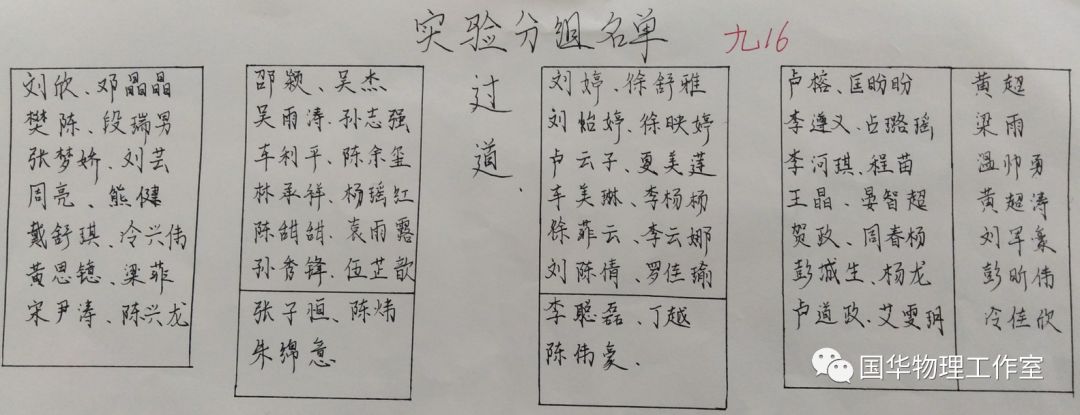 实验分组名单 九16
刘欣、邓晶晶
樊陈、段瑞男
张梦娇、刘芸
周亮、熊健
戴舒琪、冷兴伟
黄思镱、梁菲
宋尹涛、陈兴龙
邵颖、吴杰
吴雨涛、孙志强
车利平、陈余玺
林承祥、杨瑶红
陈甜甜、袁雨露
孙秀锋、伍芷歆
张子恒、陈炜
朱绵意
过道.
刘婷、徐舒雅
刘怡婷、徐映婷
卢云子、夏美莲
车美琳、李杨杨
徐菲云、李云娜
刘陈倩、罗佳瑜
李聪磊、丁越
陈伟豪.
卢榕、匡盼盼
李遵义、占璐瑶
李河琪、程苗
王晶、晏智超
贺政、周春杨
彭城生、杨龙
卢道政、艾雯玥
黄超
梁雨
温帅勇
黄超涛
刘军豪
彭昕伟
冷佳欣
国华物理工作室